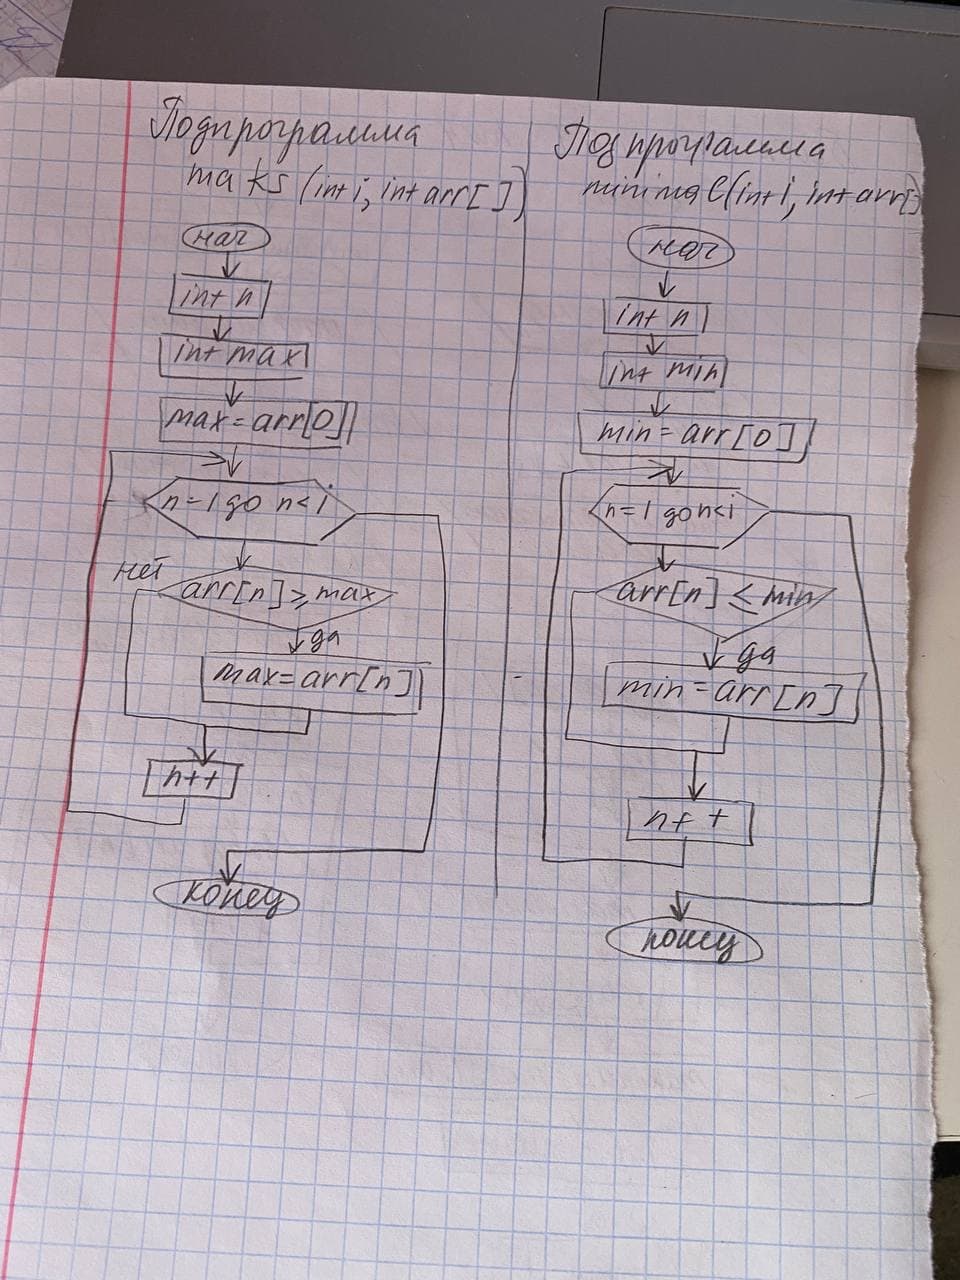 Подпрограмма
maks (int i, int arr[])
нач
int n
int max
max=arr[0]
n=1 до n<i
нет
arr[n]≥max
да
max=arr[n]
n++
конец
Подпрограмма
minimal(int i, int arr[])
нач
int n
int min
min=arr[0]
n=1 до n<i
arr[n]≤min
да
min=arr[n]
n++
конец